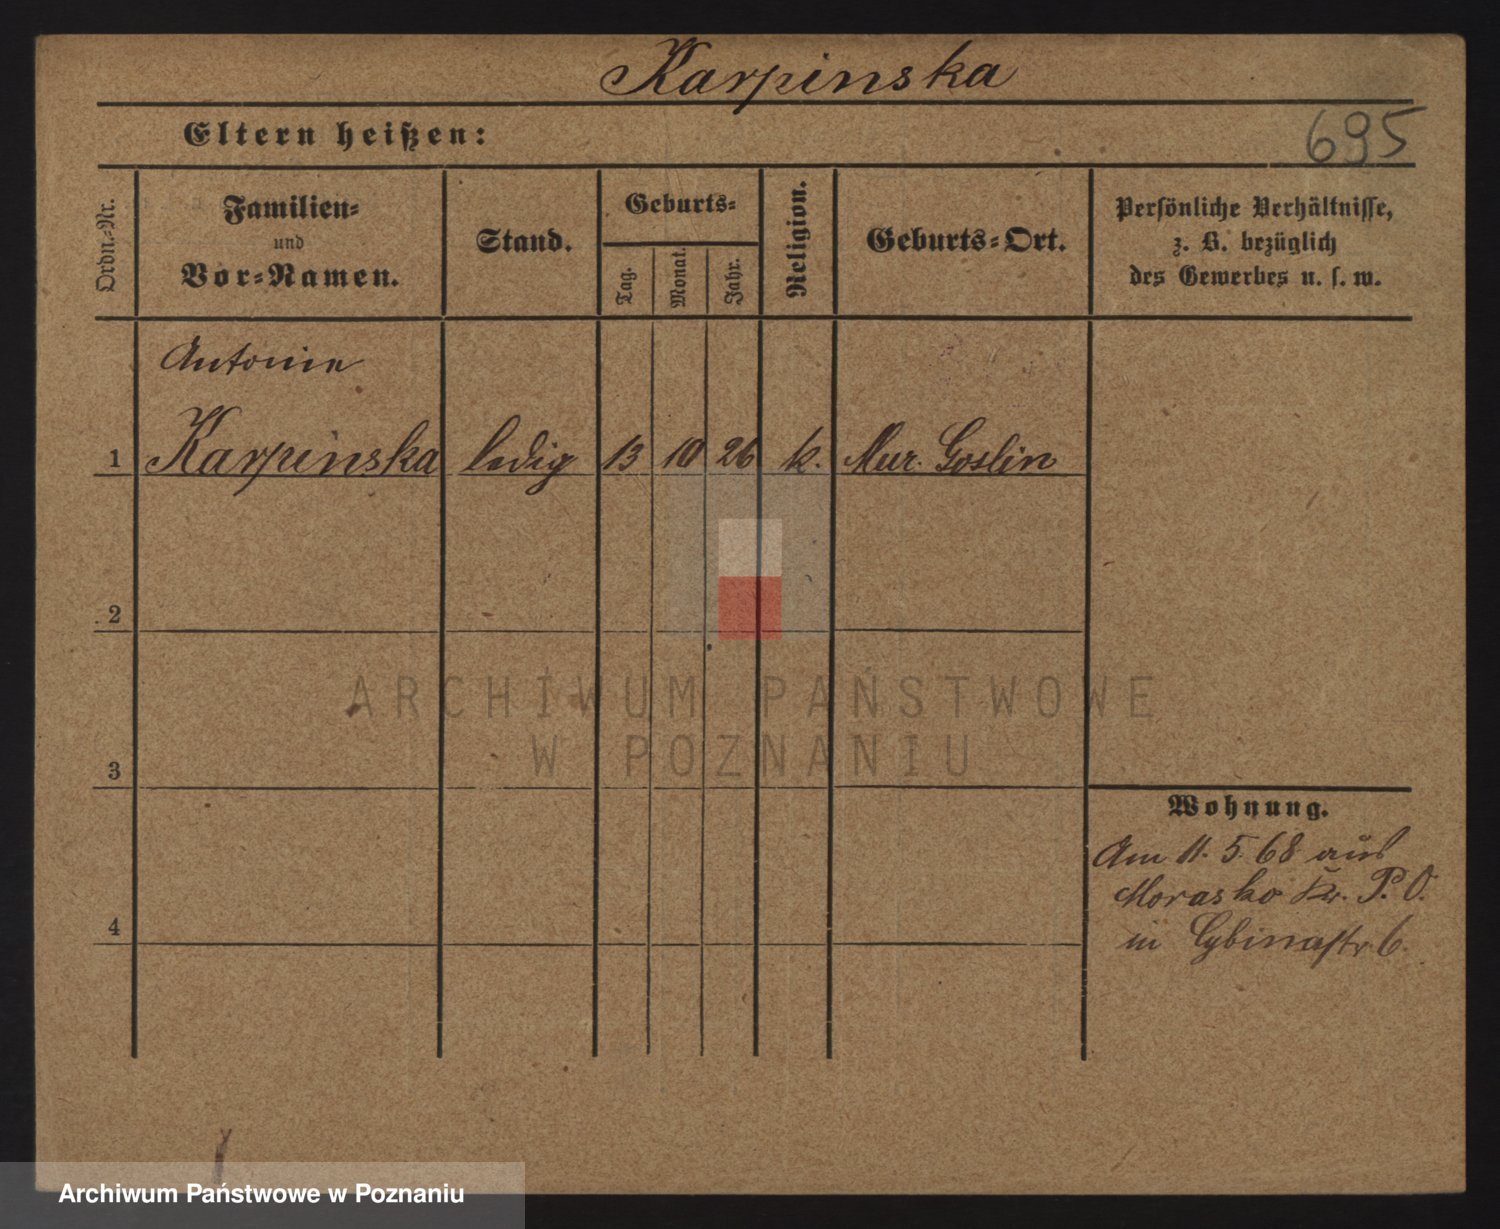 Karpinska
Eltern heißen:
695
Ordn.=Nr.
Familien=
und
Vor=Namen.
Stand.
Geburts=
Tag.
Monat.
Jahr.
Religion.
Geburts=Ort.
Persönliche Verhältnisse,
z. B. bezüglich
des Gewerbes u. s. w.
Antonie
1 Karpinska ledig 13 10 26 k. Mur. Goslin
2
3
4
Wohnung.
Am 11. 5. 68 aus
Morasko Kr. P. O.
in Cybinastr 6.
ARCHIWUM PAŃSTWOWE
W POZNANIU
Archiwum Państwowe w Poznaniu